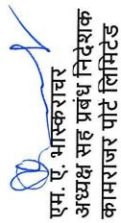 एम. ए. भास्कराचर
अध्यक्ष सह प्रबंध निदेशक
कामराजर पोर्ट लिमिटेड